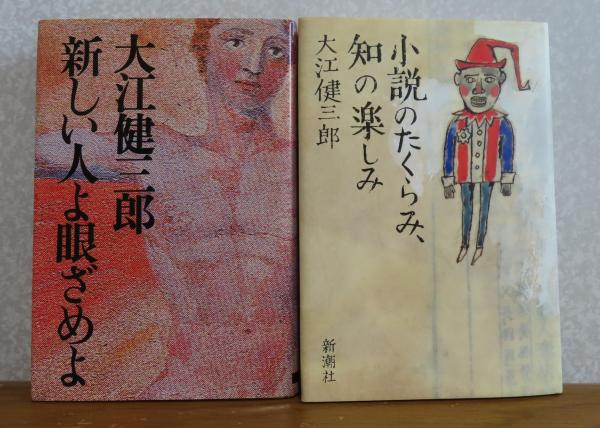 大江健三郎
新しい人よ眼ざめよ
小説のたくらみ、
知の楽しみ
大江健三郎
新潮社